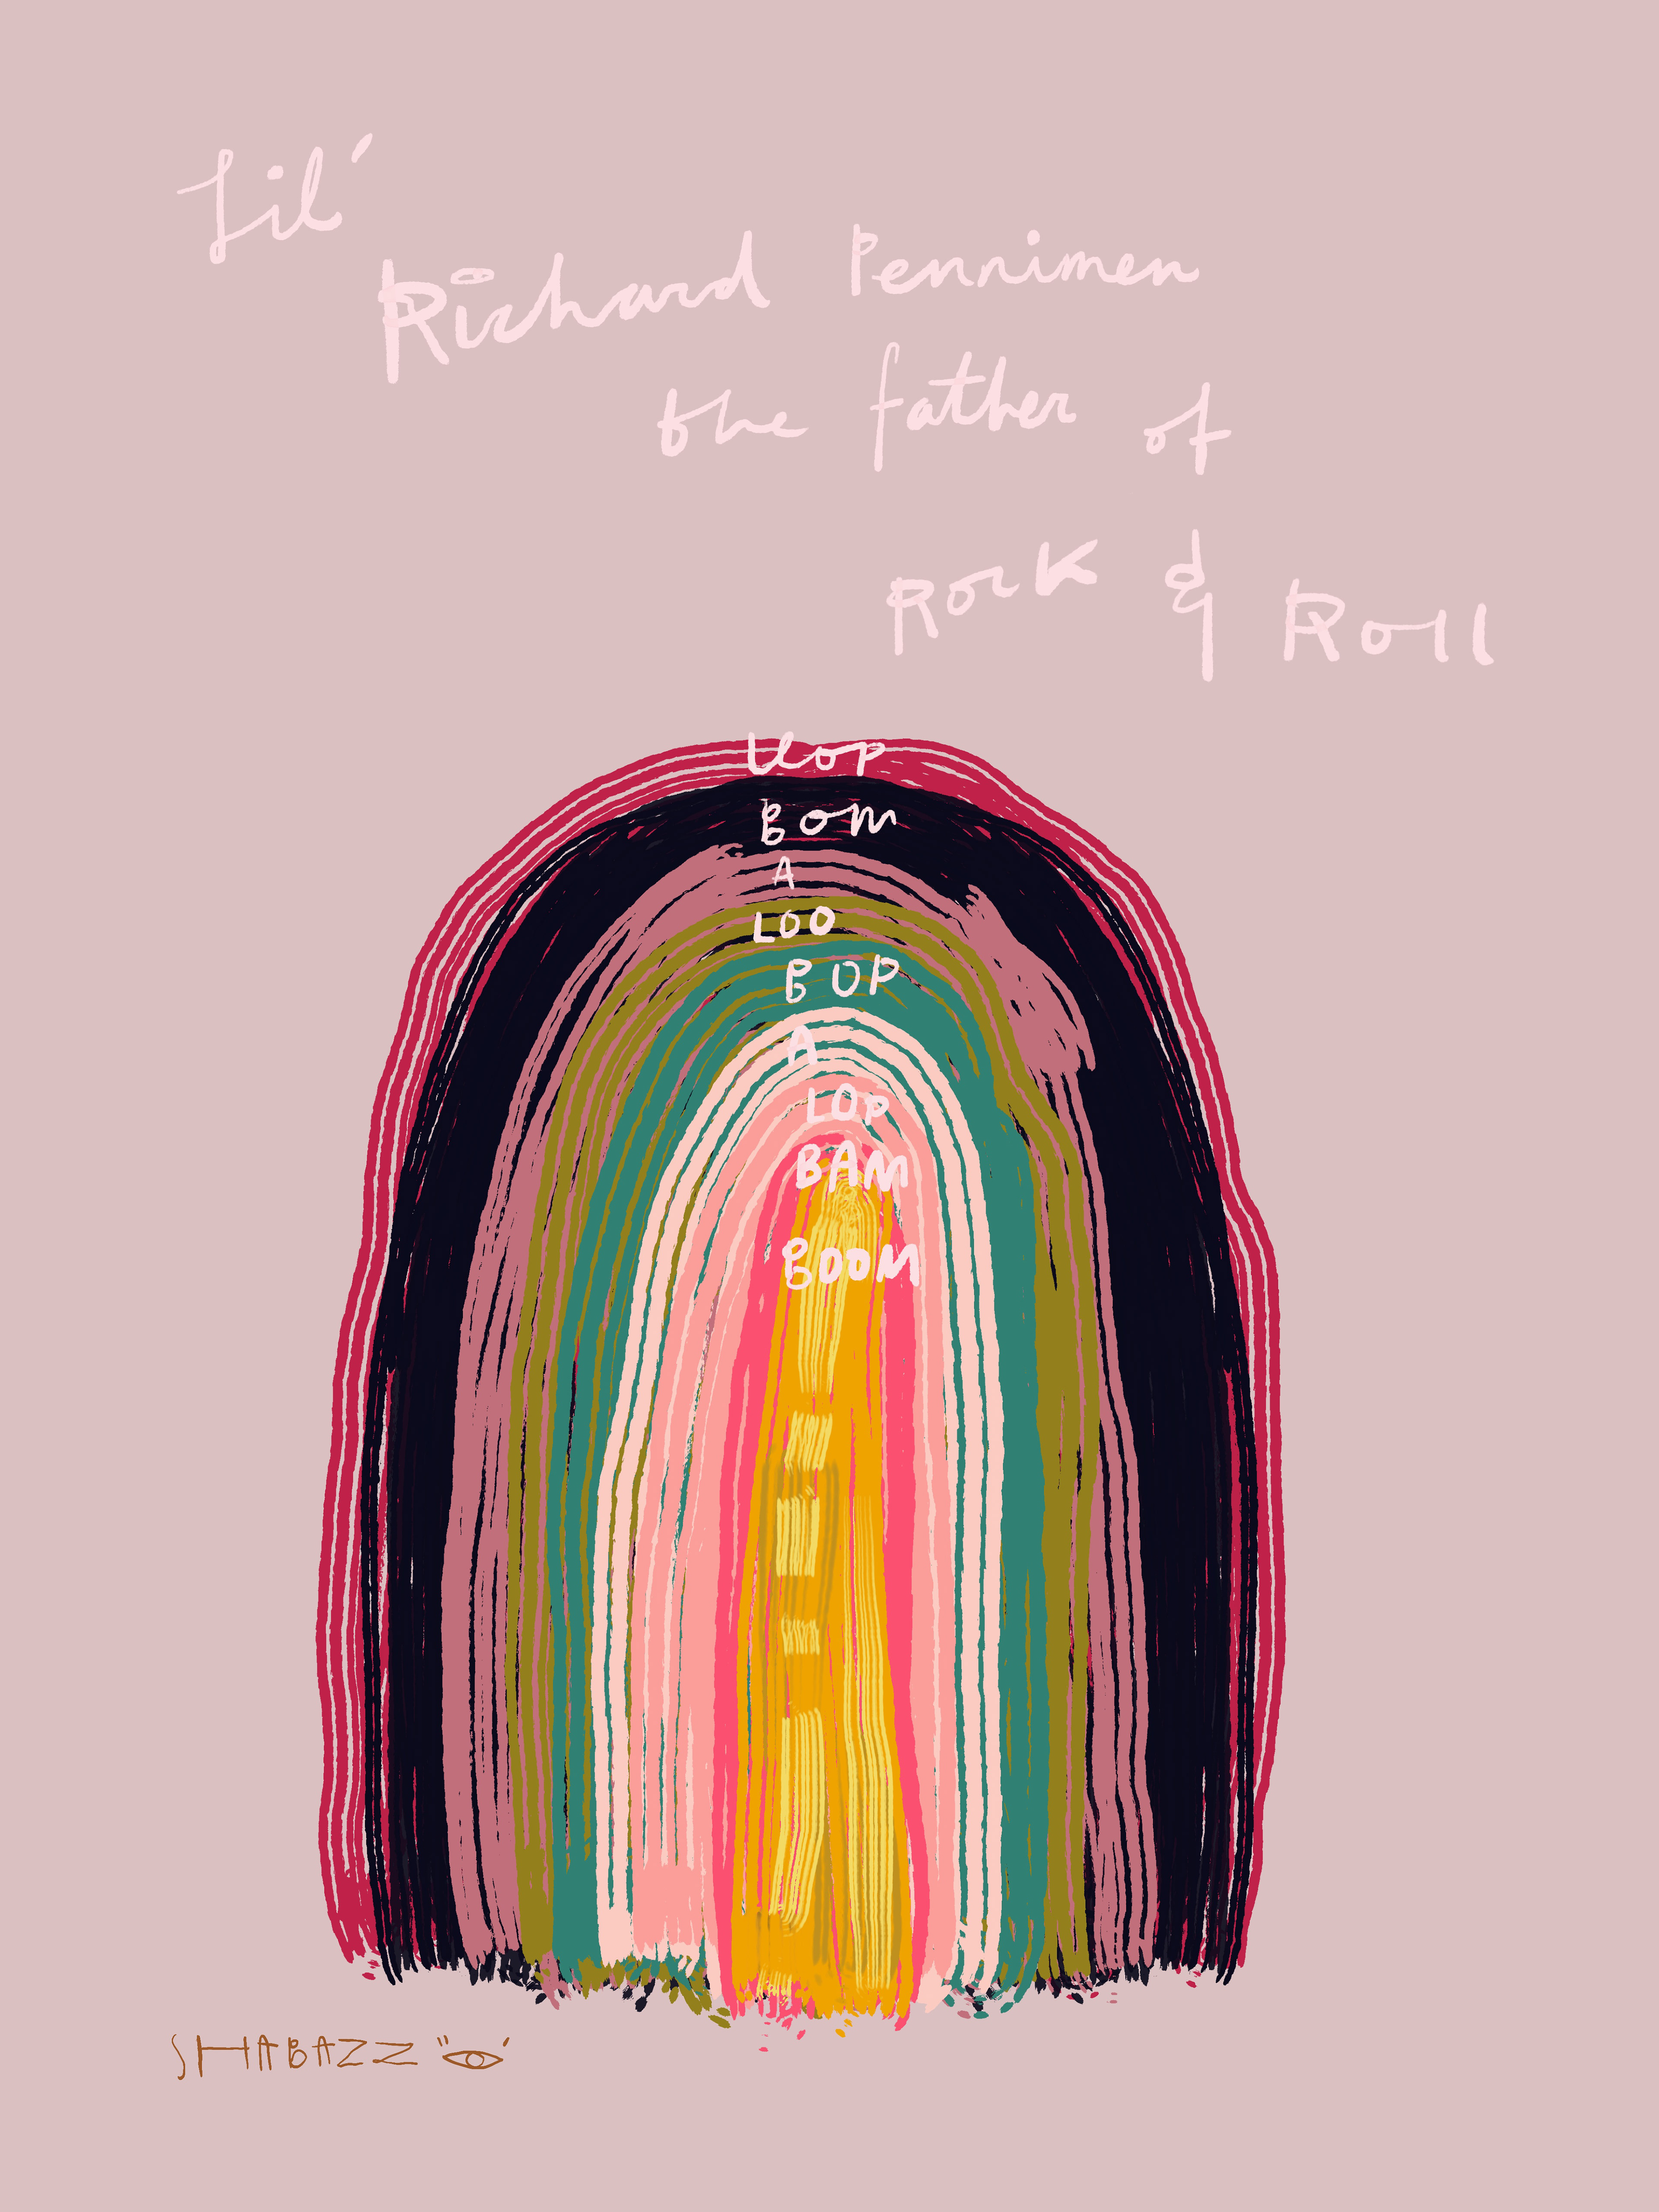 Lil'
Richard Pennimen
the father of
Rock & Roll
Uop
BOM
A
LOO
BOP
A
LOP
BAM
BOOM
SHABAZZ